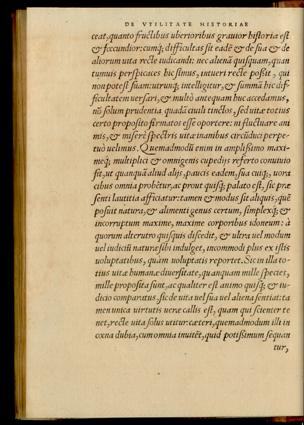 DE VTILITATE HISTORIAE
ceat, quanto fructibus uberioribus grauior historia est
& fœcundior: cumq; difficultas sit eadē & de sua & de
aliorum uita recte iudicandi: nec alienā quisquam, quan
tumuis perspicaces hic simus, intueri recte possit, qui
non potest suam: utrunq; intelligitur, & summā hic dif-
ficultatem uersari, & multò antequam huc accedamus,
nō solum prudentia quadā ciuili tinctos, sed uitæ totius
certo proposito firmatos esse oportere: ni fluctuare ani
mis, & miserè spectris uitæ inanibus circūduci perpe-
tuò uelimus. Quemadmodū enim in amplissimo maxi-
meq; multiplici & omnigenis cupedijs referto conuiuio
fit, ut quanquā aliud alijs, paucis eadem, sua cuiq;, uora
cibus omnia probētur, ac prout quisq; palato est, sic præ
senti lautitia afficiatur: tamen & modus sit aliquis, quē
posuit natura, & alimenti genus certum, simplexq; &
incorruptum maxime, maxime corporibus idoneum: à
quorum alterutro quisquis discedit, & ultra uel modum
uel iudiciū naturæ sibi indulget, incommodi plus ex istis
uoluptatibus, quàm uoluptatis reportet. Sic in illa to-
tius uitæ humanæ diuersitate, quanquam mille species,
mille proposita sunt, ac qualiter est animo quisq; & iu-
dicio comparatus. sic de uita uel sua uel aliena sentiat: ta
men unica uirtutis ueræ callis est, quam qui scienter te
net, recte uita solus utitur: cæteri, quemadmodum illi in
cœna dubia, cum omnia inuitēt, quid potissimum sequan
tur,